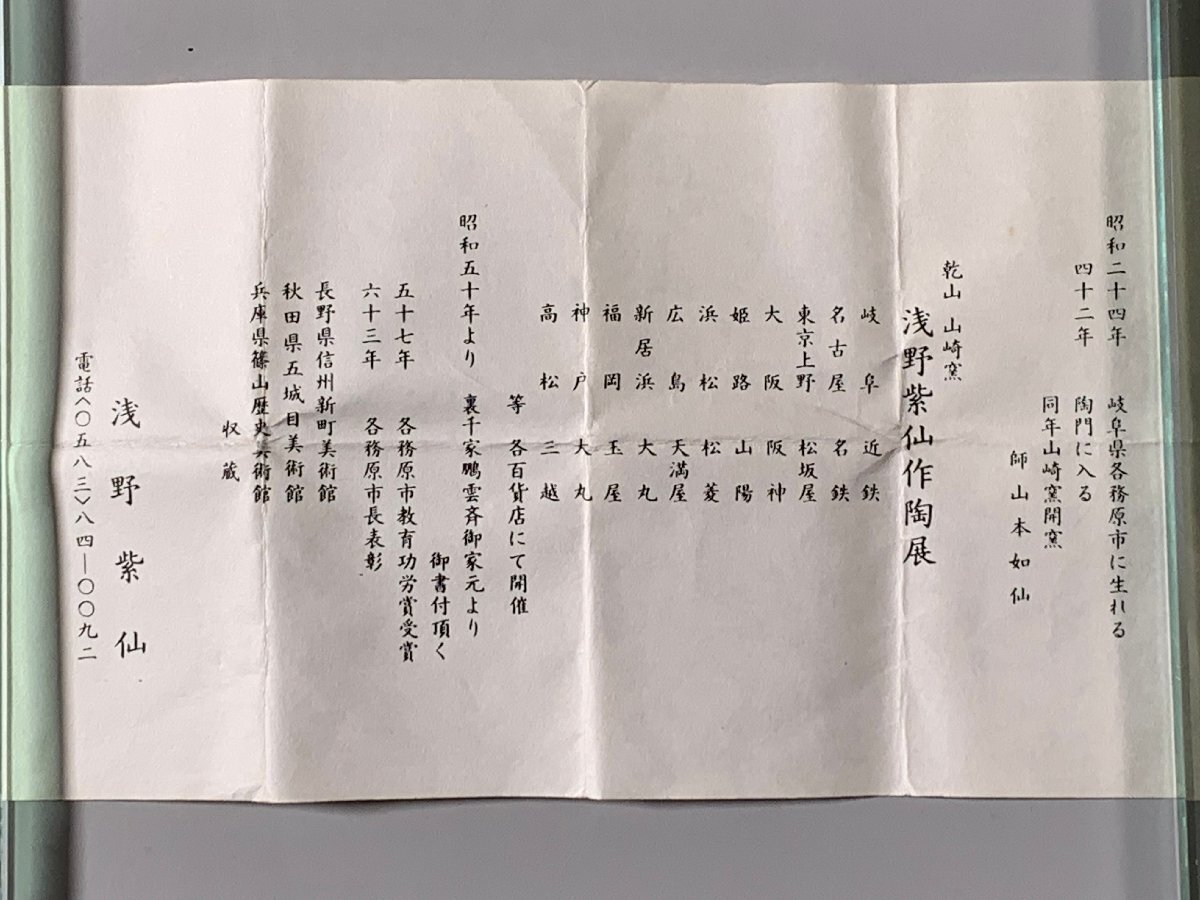 昭和二十四年 岐阜県各務原市に生れる
四十二年 陶門に入る
同年山崎窯開窯
師 山本如仙
乾山 山崎窯
浅野紫仙作陶展
岐阜 近鉄
名古屋 名鉄
東京上野 松坂屋
大阪 阪神
姫路 山陽
浜松 松菱
広島 天満屋
新居浜 大丸
福岡 玉屋
神戸 大丸
高松 三越
等 各百貨店にて開催
昭和五十年より 裏千家鵬雲斉御家元より
御書付頂く
五十七年 各務原市教育功労賞受賞
六十三年 各務原市長表彰
長野県信州新町美術館
秋田県五城目美術館
兵庫県篠山歴史美術館
収蔵
浅野紫仙
電話〈〇五八三〉八四―〇〇九二